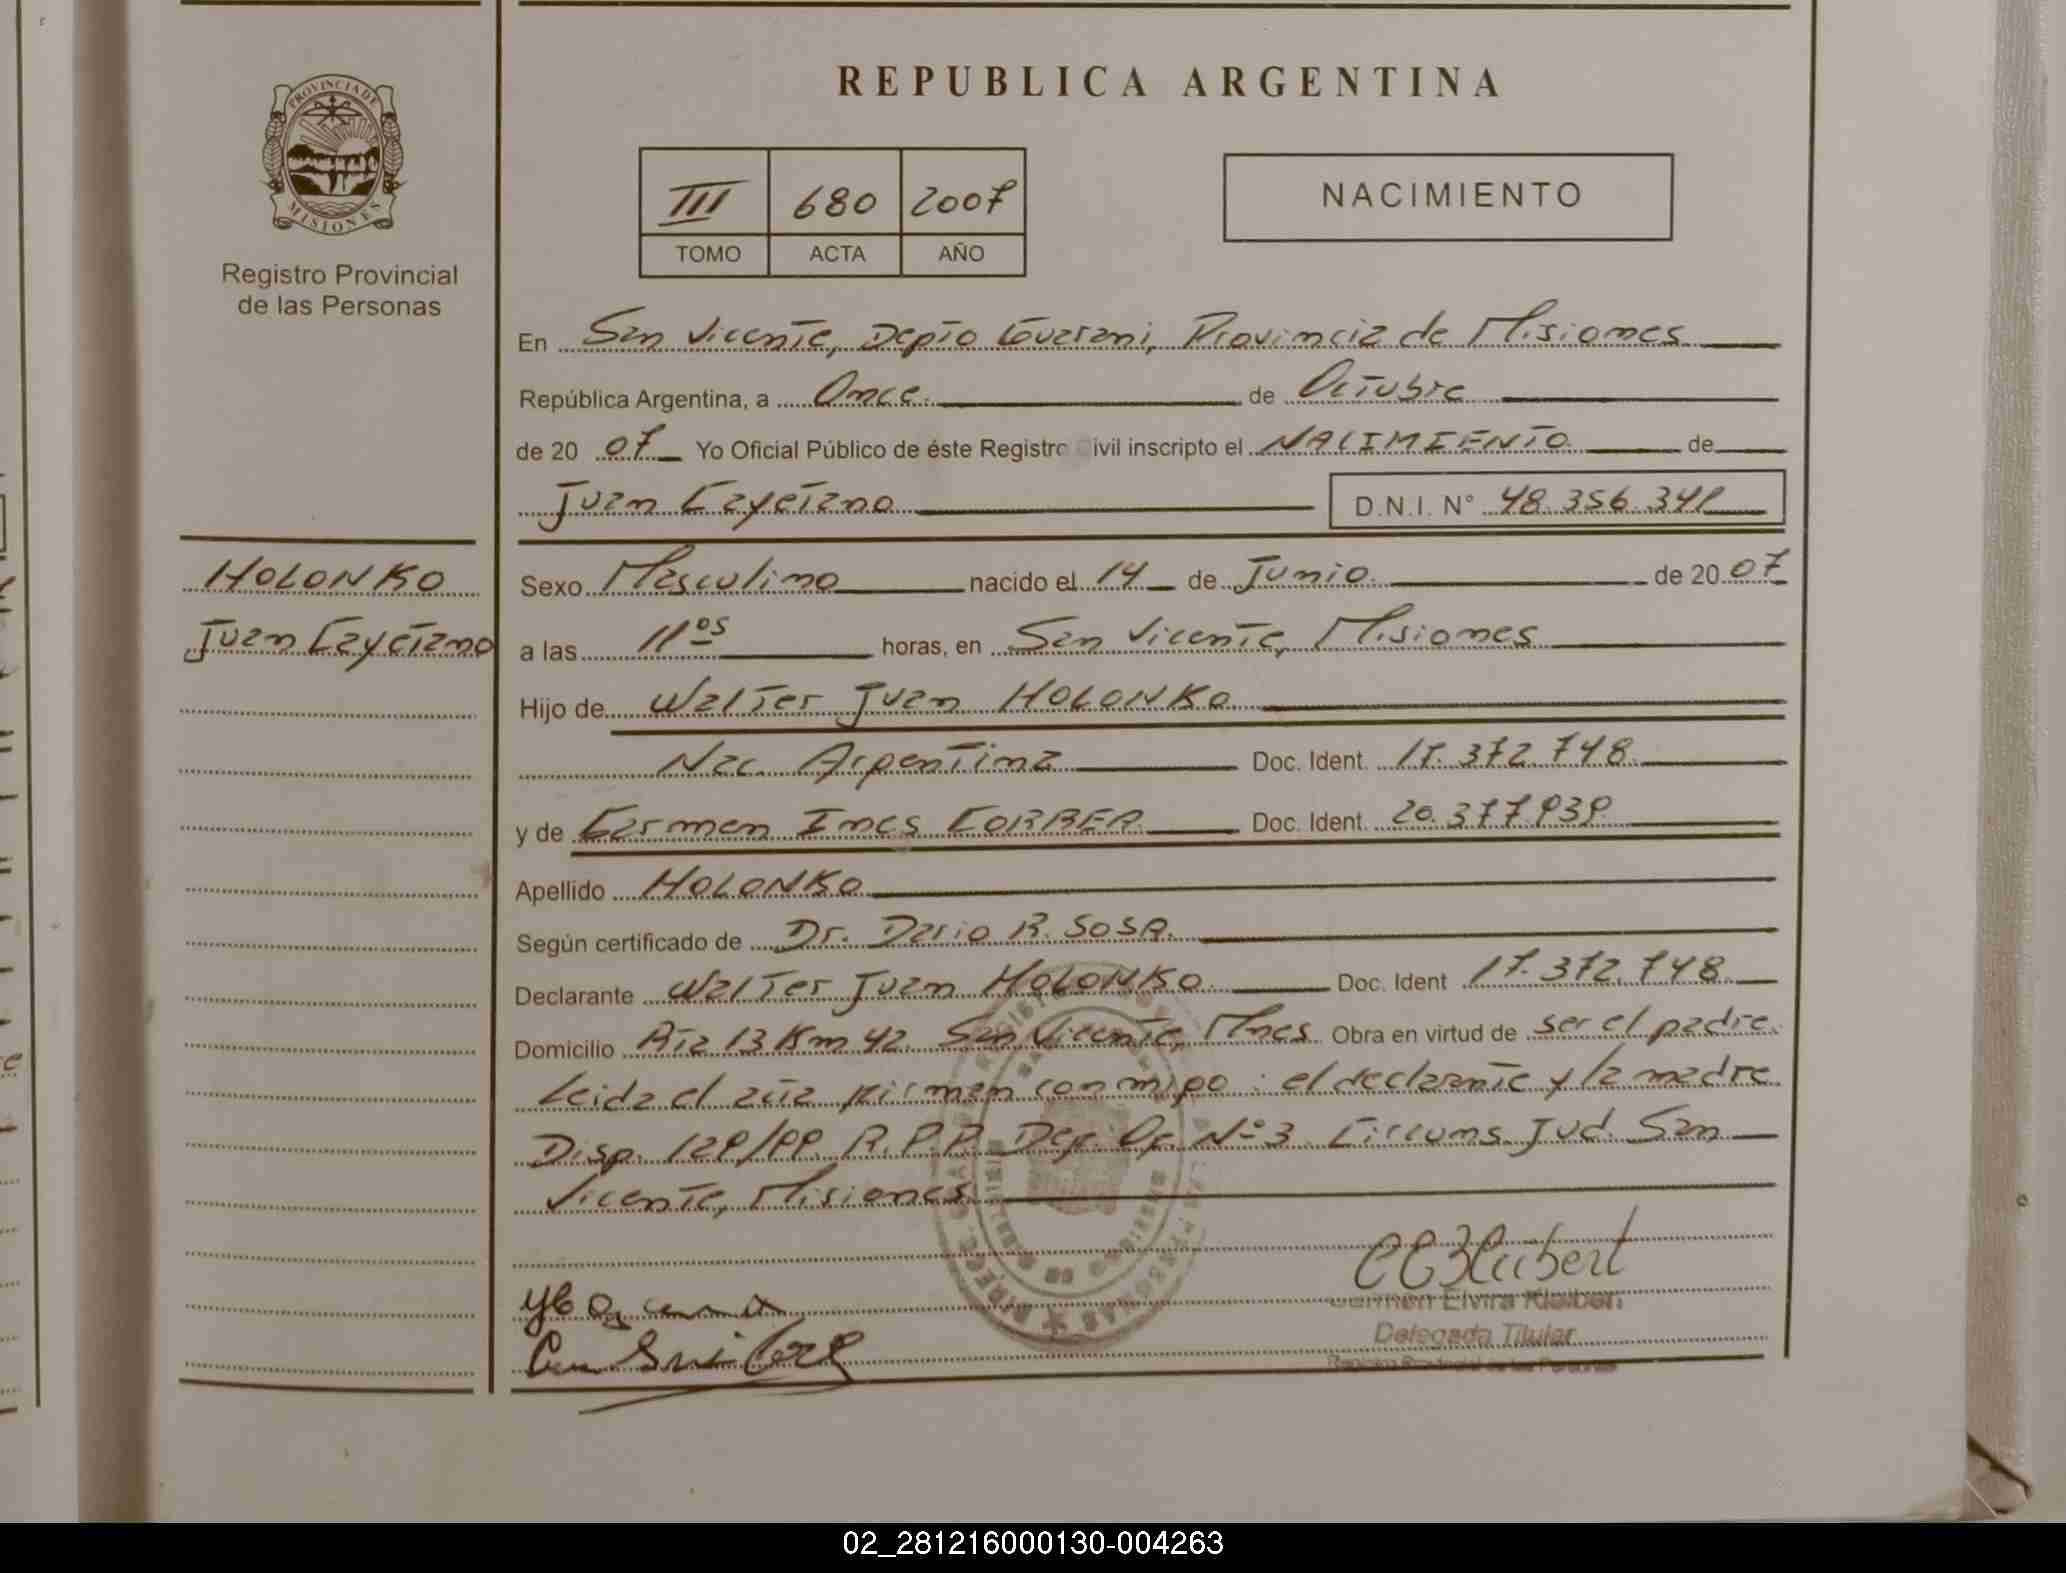 REPUBLICA ARGENTINA
PROVINCIA DE
MISIONES
Registro Provincial
de las Personas
III 680 2007
TOMO ACTA AÑO
NACIMIENTO
En San Vicente, Depto Guarani, Provincia de Misiones
República Argentina, a Once de Octubre
de 20 07 Yo Oficial Público de éste Registro Civil inscripto el NACIMIENTO de
Juan Cayetano D.N.I. N° 48.356.341
HOLONKO
Juan Cayetano
Sexo Masculino nacido el 14 de Junio de 20 07
a las 11os horas, en San Vicente, Misiones
Hijo de Walter Juan HOLONKO
Nac. Argentina Doc. Ident. 17.372.748
y de Carmen Ines CORREA Doc. Ident. 20.377.939
Apellido HOLONKO
Según certificado de Dr. Dario R. SOSA
Declarante Walter Juan HOLONKO Doc. Ident 17.372.748
Domicilio Rta 13 Km 42 San Vicente, Mnes Obra en virtud de ser el padre
Leida el acta firman conmigo: el declarante y la madre
Disp. 129/99 R.P.P. Dep. Of. N°3 Circuns. Jud. San
Vicente, Misiones
Carmen Elvira
Delegada Titular
Registro Provincial de las Personas
02_281216000130-004263